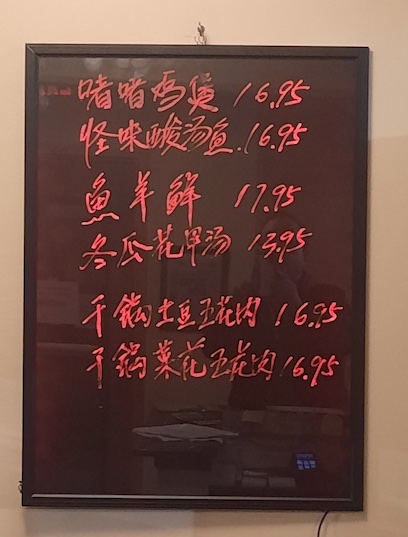 啫啫鸡煲 16.95
怪味酸汤鱼 16.95
魚羊鲜 17.95
冬瓜花甲汤 13.95
干锅土豆五花肉 16.95
干锅菜花五花肉 16.95